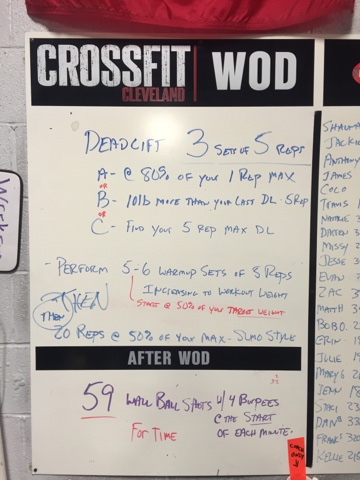 CROSSFIT
CLEVELAND
WOD
DEADLIFT 3 SETS OF 5 REPS
A- @ 80% OF YOUR 1 REP MAX
OR
B- 10LB MORE THAN YOUR LAST DL 5REP
OR
C- FIND YOUR 5 REP MAX DL
- PERFORM 5-6 WARMUP SETS OF 8 REPS
INCREASING TO WORKOUT WEIGHT
START @ 50% OF YOUR TARGET WEIGHT
THEN
THEN
20 REPS @ 50% OF YOUR MAX- SUMO STYLE
AFTER WOD
59 WALL BALL SHOTS W/ 4 BURPEES
@ THE START
FOR TIME OF EACH MINUTE.
JACKIE
ANTHONY
JAMES
COCO
TRAVIS
DARREN
MISSY
JESSE
EVAN
ZAC
MATT
BOBO
ERIN
JULIE
MARYS
JENN
DAN
FRANK
KELLIE